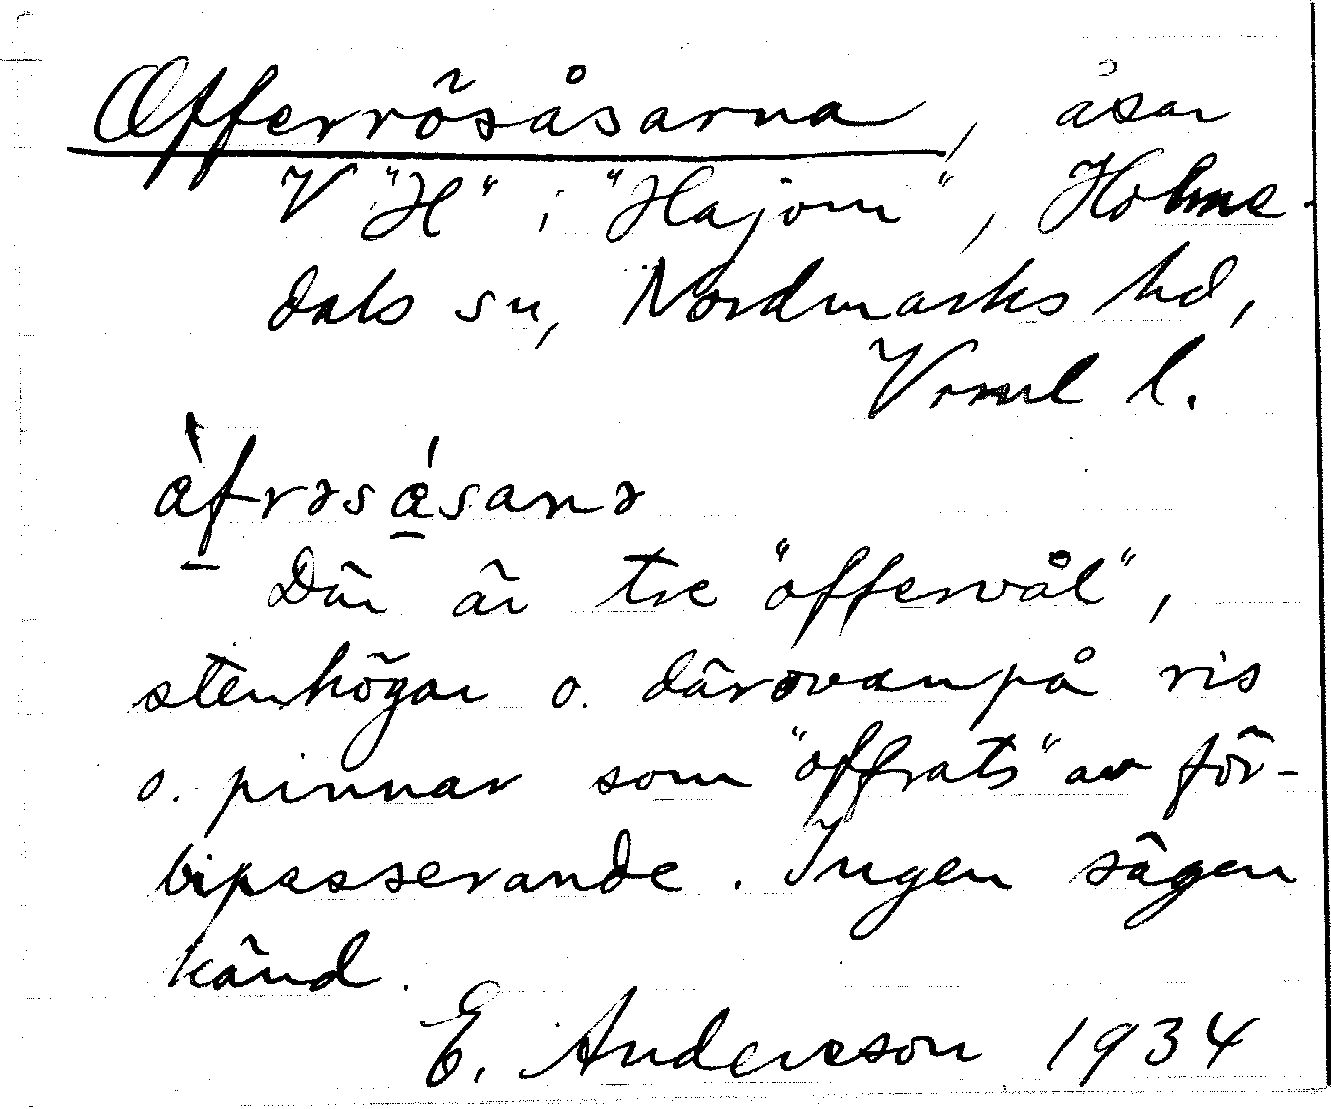 Offerrösåsarna, åsar
V "H" i "Hajom", Holme-
dals sn, Nordmarks hd,
Vrml l.
åfrəsåsanə
Där är tre "offervål",
stenhögar o. därovanpå ris
o. pinnar som "offrats" av för-
bipasserande. Ingen sägen
känd.
E. Andersson 1934